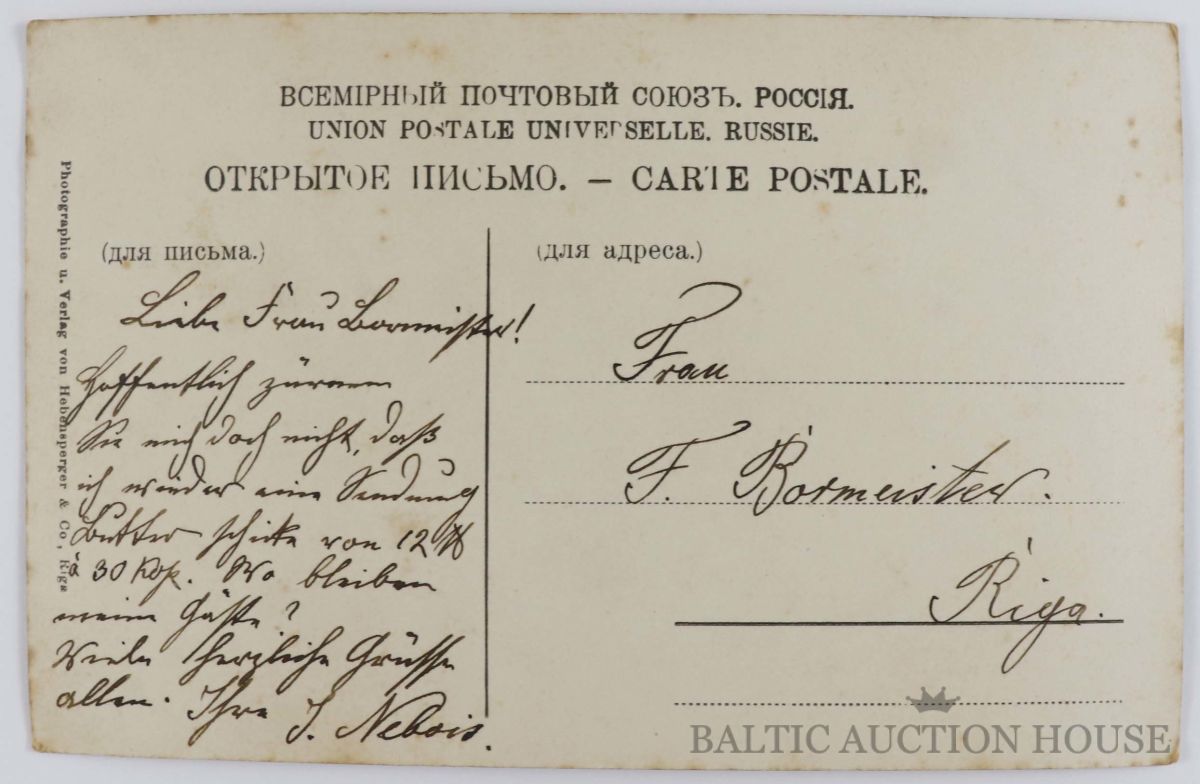 ВСЕМІРНЫЙ ПОЧТОВЫЙ СОЮЗЪ. РОССІЯ.
UNION POSTALE UNIVERSELLE. RUSSIE.
ОТКРЫТОЕ ПИСЬМО. — CARTE POSTALE.
Photographie u. Verlag von Hebensperger & Co., Riga
(для письма.)
Liebe Frau Bormeister!
Hoffentlich zürnen
Sie mich doch nicht, daß
ich wieder eine Sendung
Butter schicke von 12 ℔
à 30 Kop. Wo bleiben
meine Gäste?
Viele herzliche Grüsse
allen. Ihre J. Nebois.
(для адреса.)
Frau
F. Bormeister.
Riga.
BALTIC AUCTION HOUSE